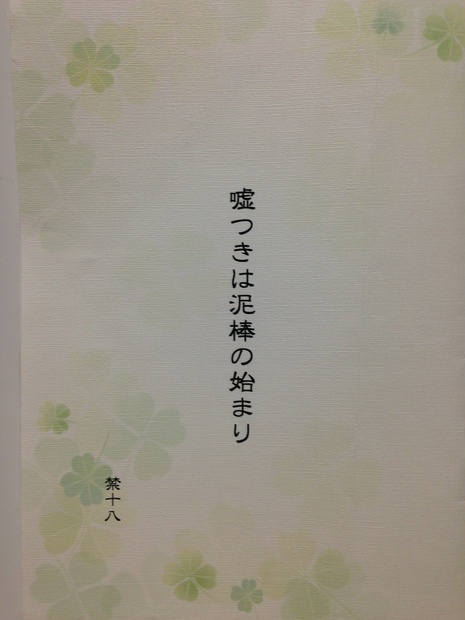 嘘つきは泥棒の始まり
禁十八